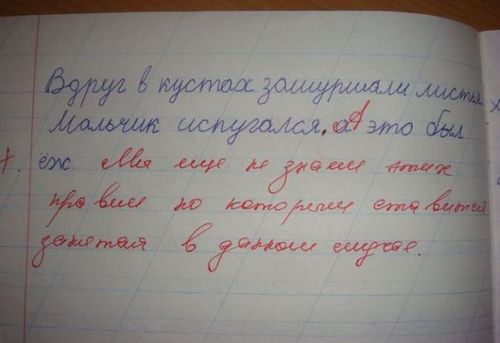 Вдруг в кустах зашуршали листья
Мальчик испугался, а А это был
ёж. Мы еще не знаем этих
правил по которым ставится
запятая в данном случае.